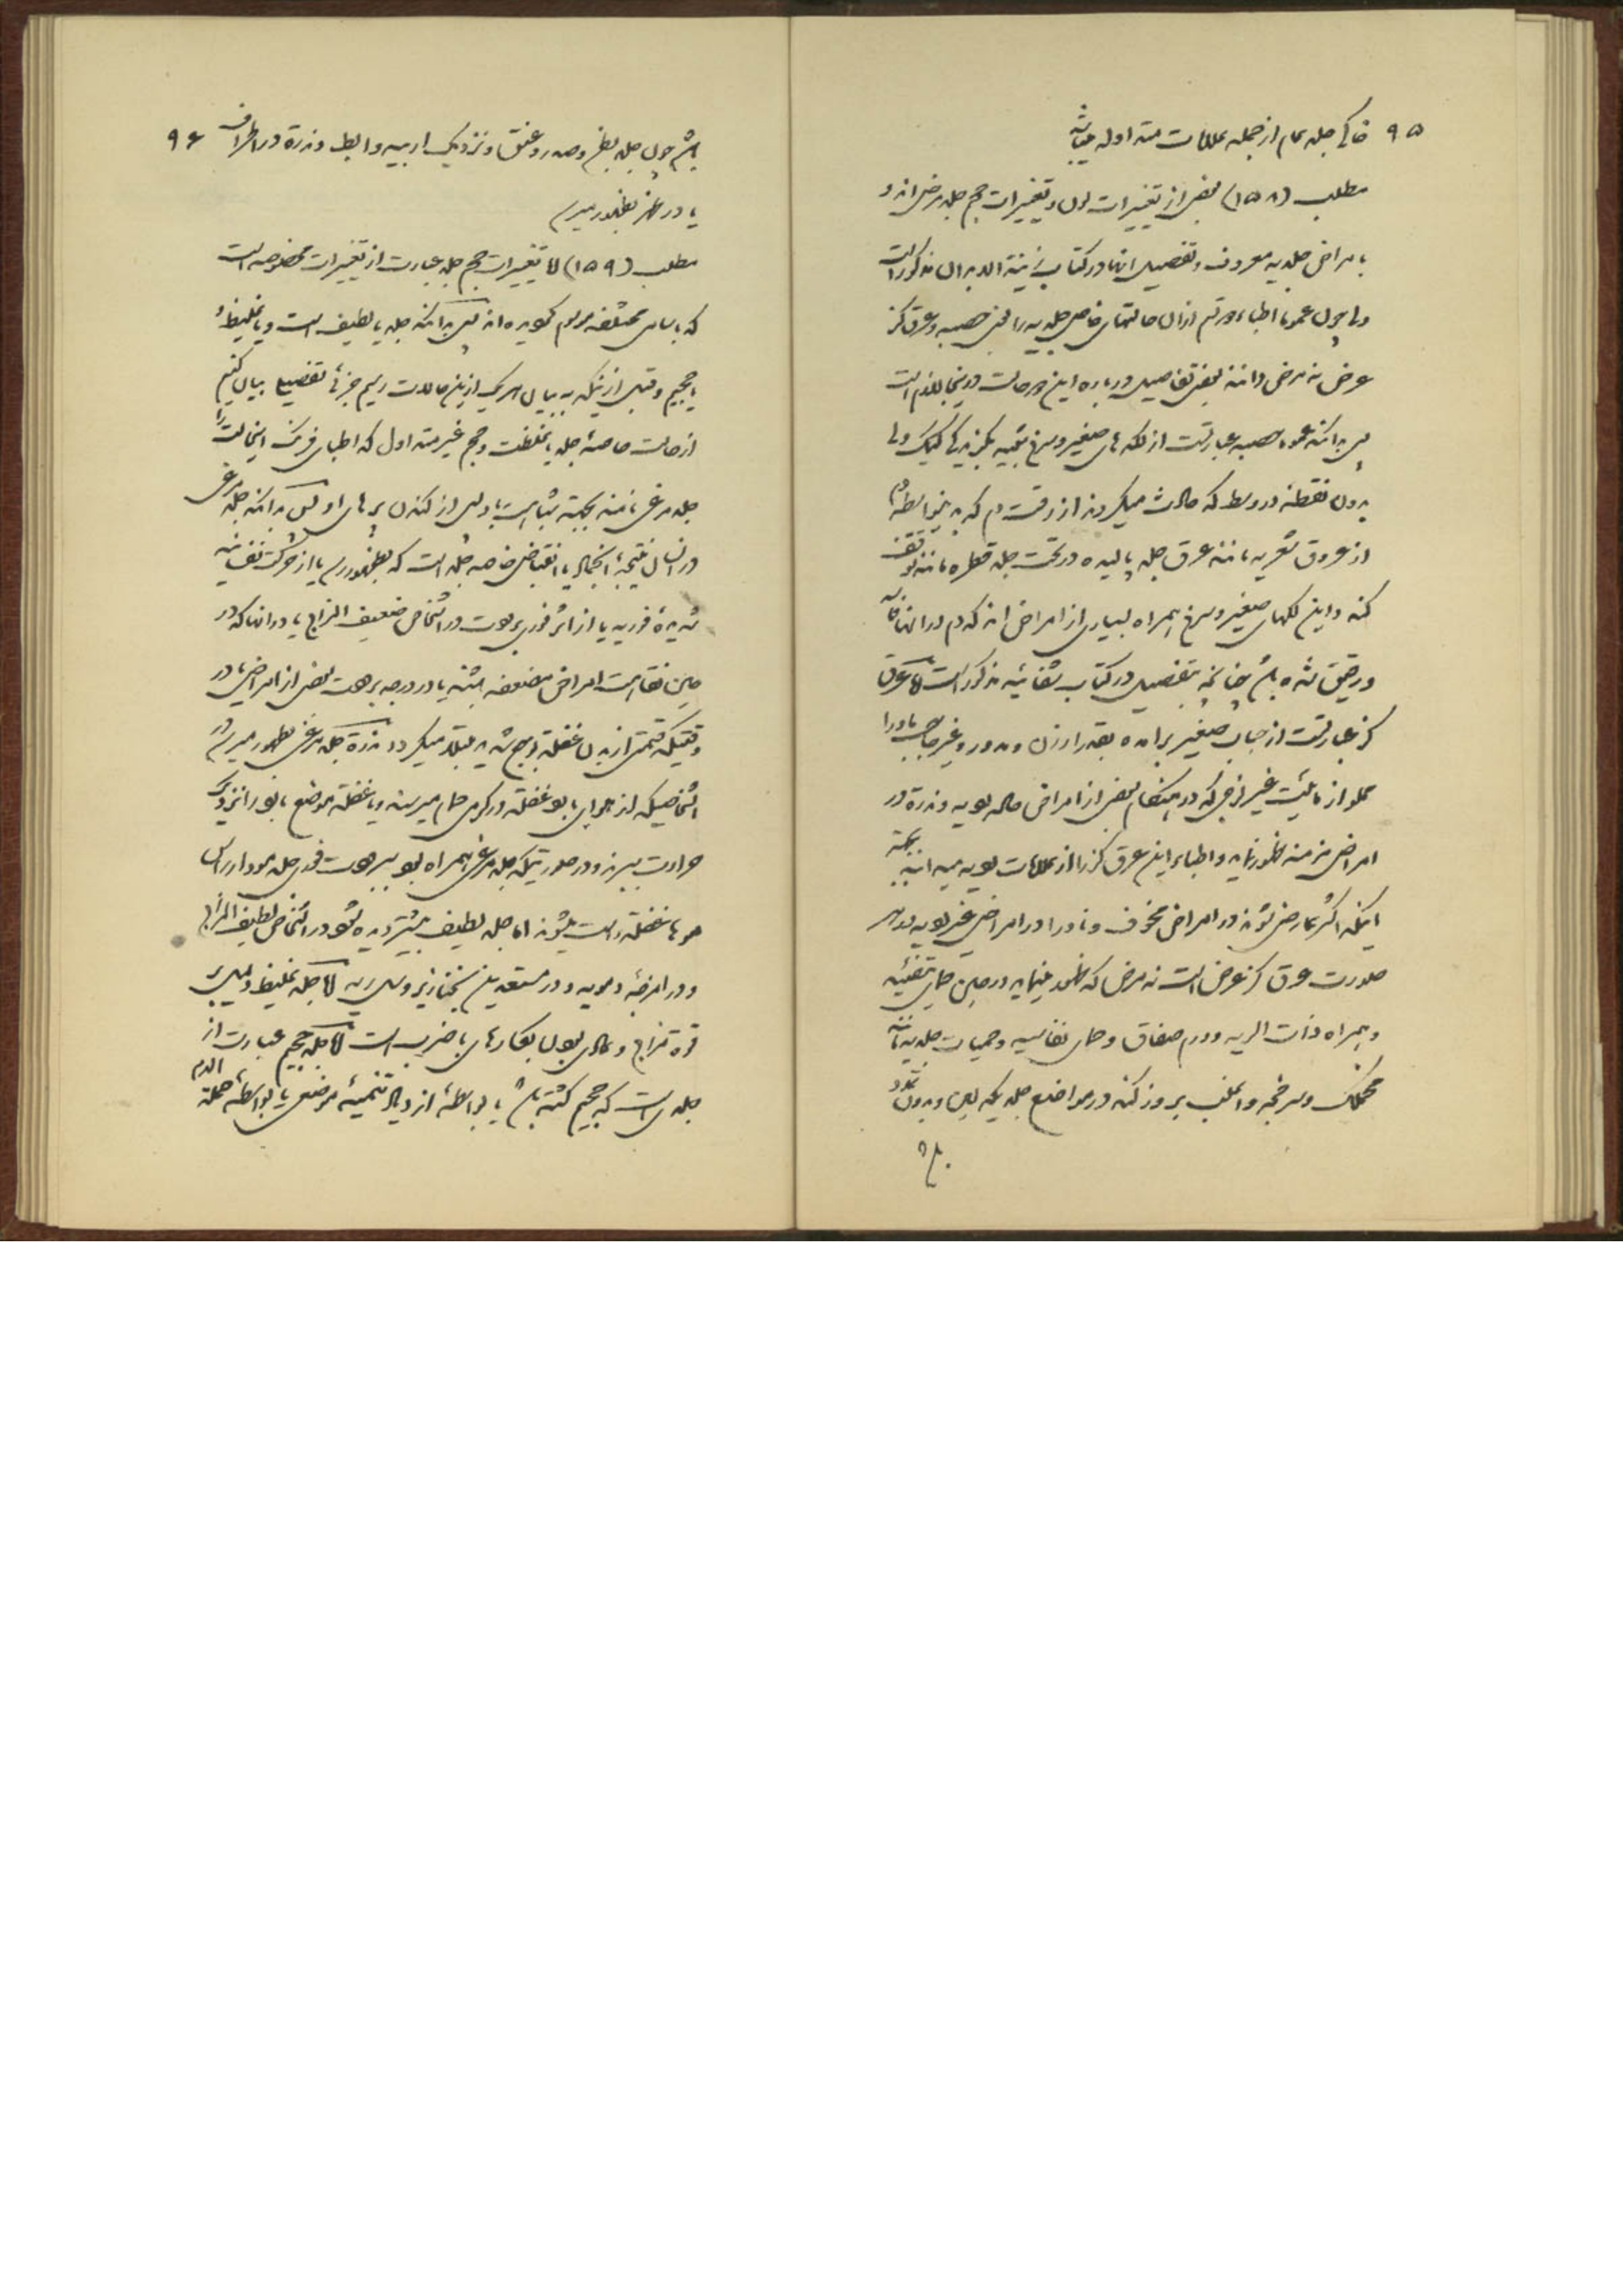 ۹۵ خاکی جلد تمام از جمله علامات مته اوله میباشد
مطلب (۱۵۸) بعضی از تغییرات لون و تغییرات حجم جلد مرضی اند و
بامراض جلدیه معروف و تفصیل انها در کتاب زینة الابدان مذکور است
ولی چون عموما اطباء قدیم ازان حالتهای خاص جلدیه را یعنی حصبه و عرق کز
عرض نه مرض دانند بعضی تفاصیل درباره این دو حالت در اینجا لازم است
پس بدانکه عموما حصبه عبارتست از لکه های صغیر و سرخ شبیه بگزیدگی کیک ولی
بدون نقطه در وسط که حادث میگردند از رقت دم که بدینواسطه
از عروق شعریه مانند عرق جلد پالیده در تحت جلد قطره مانند توقف
کند و این لکهای صغیر و سرخ همراه بسیاری از امراض اند که دم در انها
و رقیق شده باشد چنانچه بتفصیل در کتاب شفائیه مذکور است اما عرق
کز عبارتست از حباب صغیر برامده بقدر ارزن و مدور و غیر حاجب ماورا
مملو از مائیت غیر لزجی که در هنگام بعضی از امراض حاده بویه و ندرة در
امراض مزمنه ظهور نماید و اطباء این عرق کز را از علامات بویه میدانند بجهة
اینکه اکثر عارض شوند در امراض مخوف و نادرا در امراض غیر بویه بهر
صورت عرق کز عرض است نه مرض که ظهور مینماید در حین حمای تیفئیه
و همراه ذات الریه و ورم صفاق و حمای نفاسیه و حمیات جلدیه مانند
مخملک و سرخجه و اغلب بروز کند در مواضع جلد یکه لین و بدون
باشد
باشد چون جلد بطن و صدر و عنق و نزدیک اربیه و ابط و ندرة در اطراف ۹۶
یا در ظهر بظهور میرسد
مطلب (۱۵۹) اما تغییرات حجم جلد عبارت از تغییرات مخصوصه است
که باسامی مختلفه موسوم گردیده اند پس بدانکه جلد یا لطیف است و یا غلیظ و
یا حجیم و قبل از اینکه به بیان هر یک ازین حالات رسیم جزئی تفصیل بیان کنیم
از حالت خاصه جلد با غلظت و حجم غیر مته اول که اطبای فرنک اینحالت را
جلد مرغی نامند بجهة شباهت با جلد پس از کندن پرهای او پس بدانکه جلد مرغی
در انسان نتیجه انجماد یا انقباض خاصه جلد است که بظهور رسد یا از حرکت نفسانیه
شدیده فوریه یا از اثر فوری برودت در اشخاص ضعیف المزاج یا در انها که در
حین نقاهت امراض مضعفه باشند یا در درجه برودت بعضی از امراض یا در
وقتیکه قسمتی از بدن غفلة بوجع شدید مبتلا میگردد و ندرة جلد مرغی بظهور میرسد در
اشخاصیکه از هوای بارد غفلة در گرمی حمام میرسند و یا غفلة موضع بارد را نزدیک
حرارت ببرند و در صورتیکه جلد مرغی همراه بود ببرودت فوری جلد مودار راس
موها غفلة راست میشوند اما جلد لطیف بیشتر دیده شود در اشخاص لطیف المزاج
و در امزجه دمویه و در مستعدین بخنازیر و سل ریه اما جلد غلیظ دلیل بر
قوه مزاج و عادی بودن بکارهای با ضرب است اما جلد حجیم عبارت از
جلدی است که حجیم گشته باشد یا بواسطه ازدیاد تنمیه موضعی یا بواسطه حملة الدم